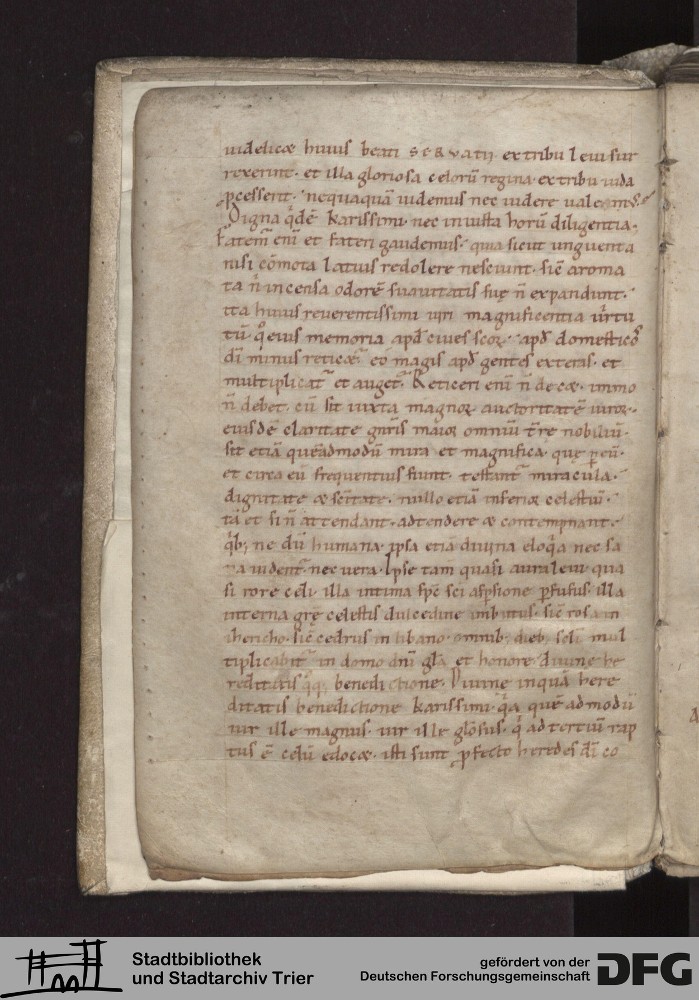 uidelicæ huius beati SERVATII. ex tribu leui sur
rexerint. et illa gloriosa celorū regina ex tribu iuda
ꝓcesserit. nequaquā uidemus nec uidere ualeamꝰ.
Digna q̇dē karissimi nec iniusta horū diligentia.
Fatem̄ eni et fateri gaudemus. quia sicut unguenta
nisi cōmota latius redolere nesciunt. sic̄ aroma
ta n̄ incensa odorē suauitatis suę n̄ expandunt.
ita huius reuerentissimi uiri magnificentia uirtu
tū. q̇ eius memoria apđ ciues scoꝝ. apđ domesticos
di minus reticæt̄. eo magis apđ gentes exteras. et
multiplicat̄ et auget̄. Reticeri eni n̄ decæ. immo
n̄ debet. cū sit iuxta magnoꝝ auctoritatē uiroꝝ.
eiusdē claritate gn̄ris maioꝝ omniū tr̄e nobiliū.
sit etiā quēadmodū mira et magnifica. quę ꝑ eū.
et circa eū frequentius fiunt. testant̄ miracula.
dignitate æ sc̄itate. nullo etiā inferior celestiū.
tā et si n̄ attendant. adtendere æ contempnant.
q̇b; ne dū humana. ipsa etiā diuina eloq̇a nec sa
na uident̄. nec uera. Ipse tam quasi aura leui qua
si rore celi. illa intima sp̄c sci aspsione ꝑfusus. illa
interna grę celestis dulcedine imbutus. sic̄ rosa in
ihericho. sic̄ cedrus in libano. omnib; dieb; seli mul
tiplicabit̄ in domo dn̄i gl̄a et honore diuine he
reditatis q̇q; benedictione. Diuine inquā here
ditatis benedictione karissimi. q̇a quē admodū
uir ille magnus. uir ille glōsus. q̇ ad tertiū rap
tus ē celū edocæ. isti sunt ꝓfecto heredes dī co
Stadtbibliothek
und Stadtarchiv Trier
gefördert von der
Deutschen Forschungsgemeinschaft
DFG